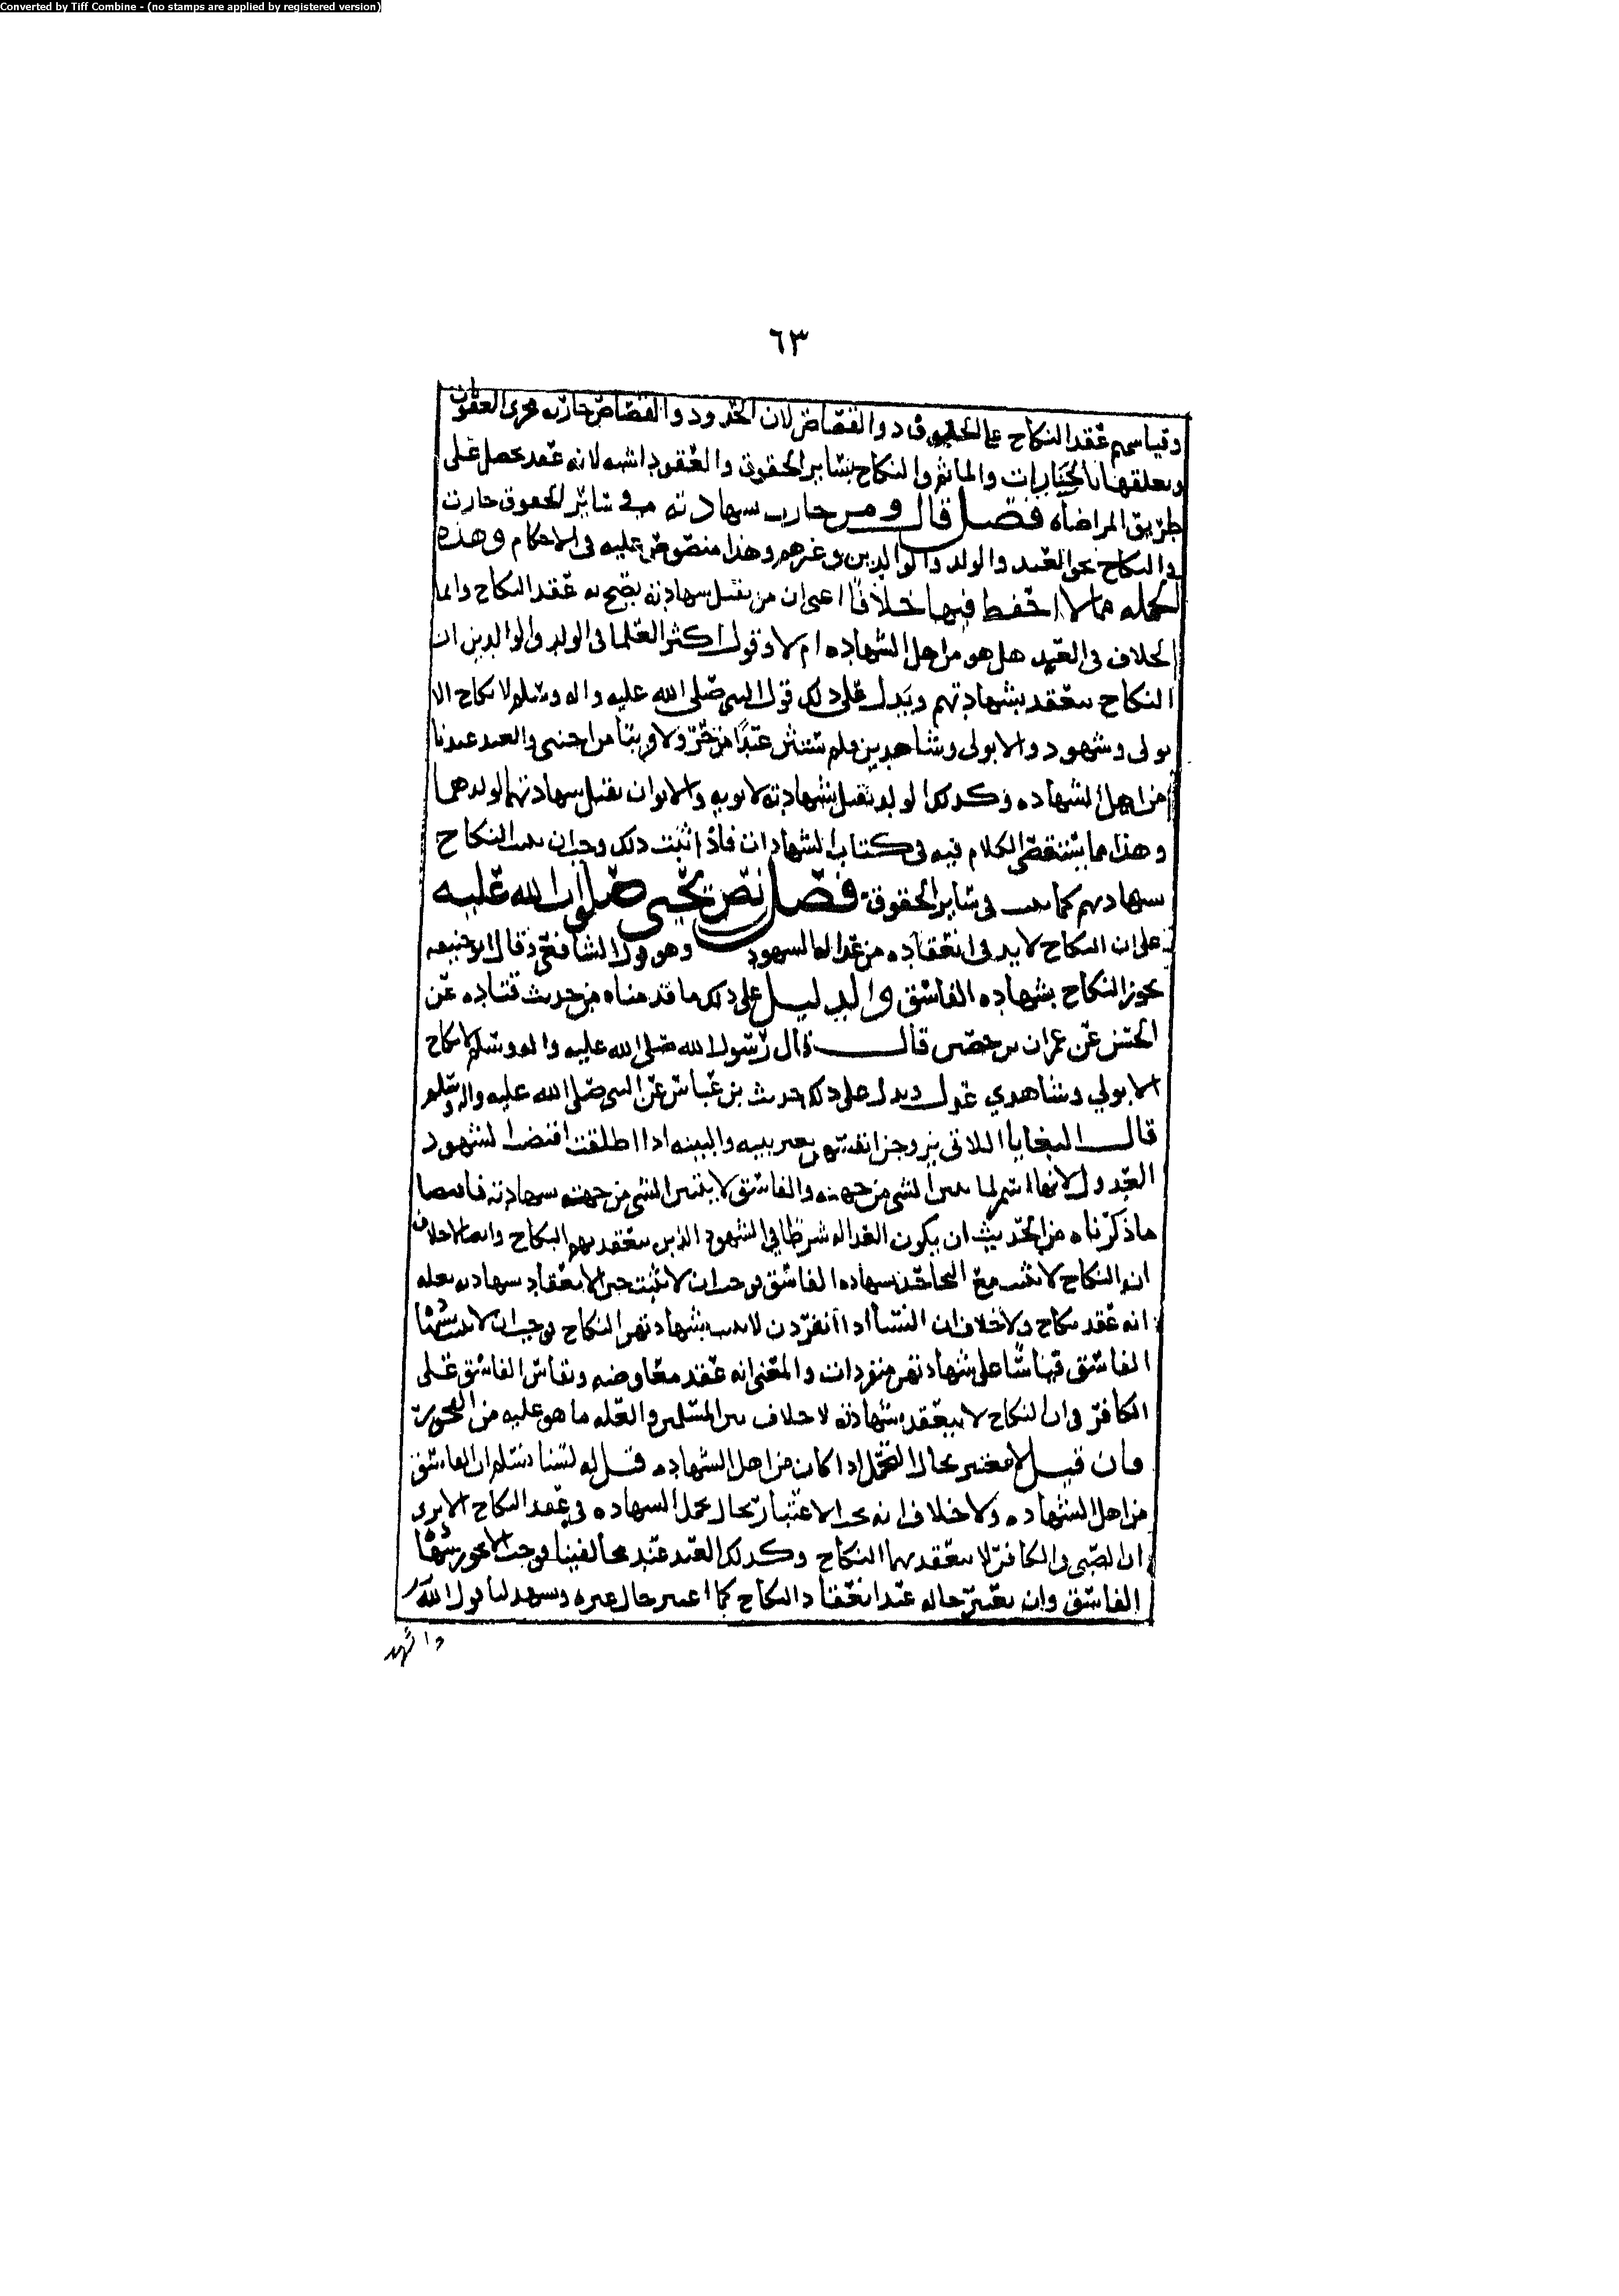 Converted by Tiff Combine - (no stamps are applied by registered version)
٦٣
وقياسهم عقد النكاح على الحدود والقصاص لان الحدود والقصاص جاريه مجرى العقوبات
وتعلقها بالجنايات والماثم والنكاح بسائر الحقوق والعقود اشبه لانه عقد يحصل على
طريق المراضاه فصل قال ومن جازت شهادته في سائر الحقوق جازت
في النكاح نحو العبد والولد والوالدين وغيرهم وهذا منصوص عليه في الاحكام وهذه
الجمله مما لا احفظ فيها خلافا اعني ان من يقبل شهادته يصح به عقد النكاح وانما
الخلاف في العبد هل هو من اهل الشهاده ام لا وقول اكثر العلما في الولد والوالدين ان
النكاح ينعقد بشهادتهم ويدل على ذلك قول النبي صلى الله عليه واله وسلم لا نكاح الا
بولي وشهود والا بولي وشاهدين ولم يستثن عبدا من حر ولا قريبا من اجنبي والعبد عندنا
من اهل الشهاده وكذلك الولد تقبل شهادته لابويه والابوان تقبل شهادتهما لولدهما
وهذا مما يستقصى الكلام فيه في كتاب الشهادات فاذا ثبت ذلك وجب ان يثبت النكاح
بشهادتهم كما يثبت في سائر الحقوق فصل نص يحيى صلوات الله عليه
على ان النكاح لابد في انعقاده من عداله الشهود وهو قول الشافعي وقال ابو حنيفه
يجوز النكاح بشهاده الفاسق والدليل على ذلك ما قدمناه من حديث قتاده عن
الحسن عن عمران بن حصين قال قال رسول الله صلى الله عليه واله وسلم لا نكاح
الا بولي وشاهدي عدل ويدل على ذلك حديث بن عباس عن النبي صلى الله عليه واله وسلم
قال البغايا اللاتي يزوجن انفسهن بغير بينه والبينه اذا اطلقت اقتضا الشهود
العدول لانها اسم لما يبين الشي من جهته والفاسق لا يتبين الشي من جهته شهادته فاقتضا
ما ذكرناه من الحديث ان يكون العداله شرطا في الشهود الذين ينعقد بهم النكاح وايضا لا خلاف
ان النكاح لا يثبت مع التجاحد بشهاده الفاسق فوجب ان لا يثبت حين الانعقاد بشهادته بعله
انه عقد نكاح ولا خلاف ان النسا اذا انفردن لا يثبت بشهادتهن النكاح فوجب ان لا يثبت بشهاده
الفاسق قياسا على شهادتهن منفردات والمعنى انه عقد معاوضه ويقاس الفاسق على
الكافر في ان النكاح لا ينعقد بشهادته لا خلاف بين المسلمين والعله ما هو عليه من الفجور
فان قيل لا معتبر بحال التحمل اذا كان من اهل الشهاده قيل له لسنا نسلم ان الفاسق
من اهل الشهاده ولا خلاف انه يجب الاعتبار بحال تحمل الشهاده في عقد النكاح الا ترى
ان الصبي والكافر لا ينعقد بهما النكاح وكذلك العبد عند مخالفينا فوجب الا يجوز شهاده
الفاسق وان يعتبر حاله عند انعقاد النكاح كما اعتبر حال غيره ويشهد لنا قول الله
واشهد